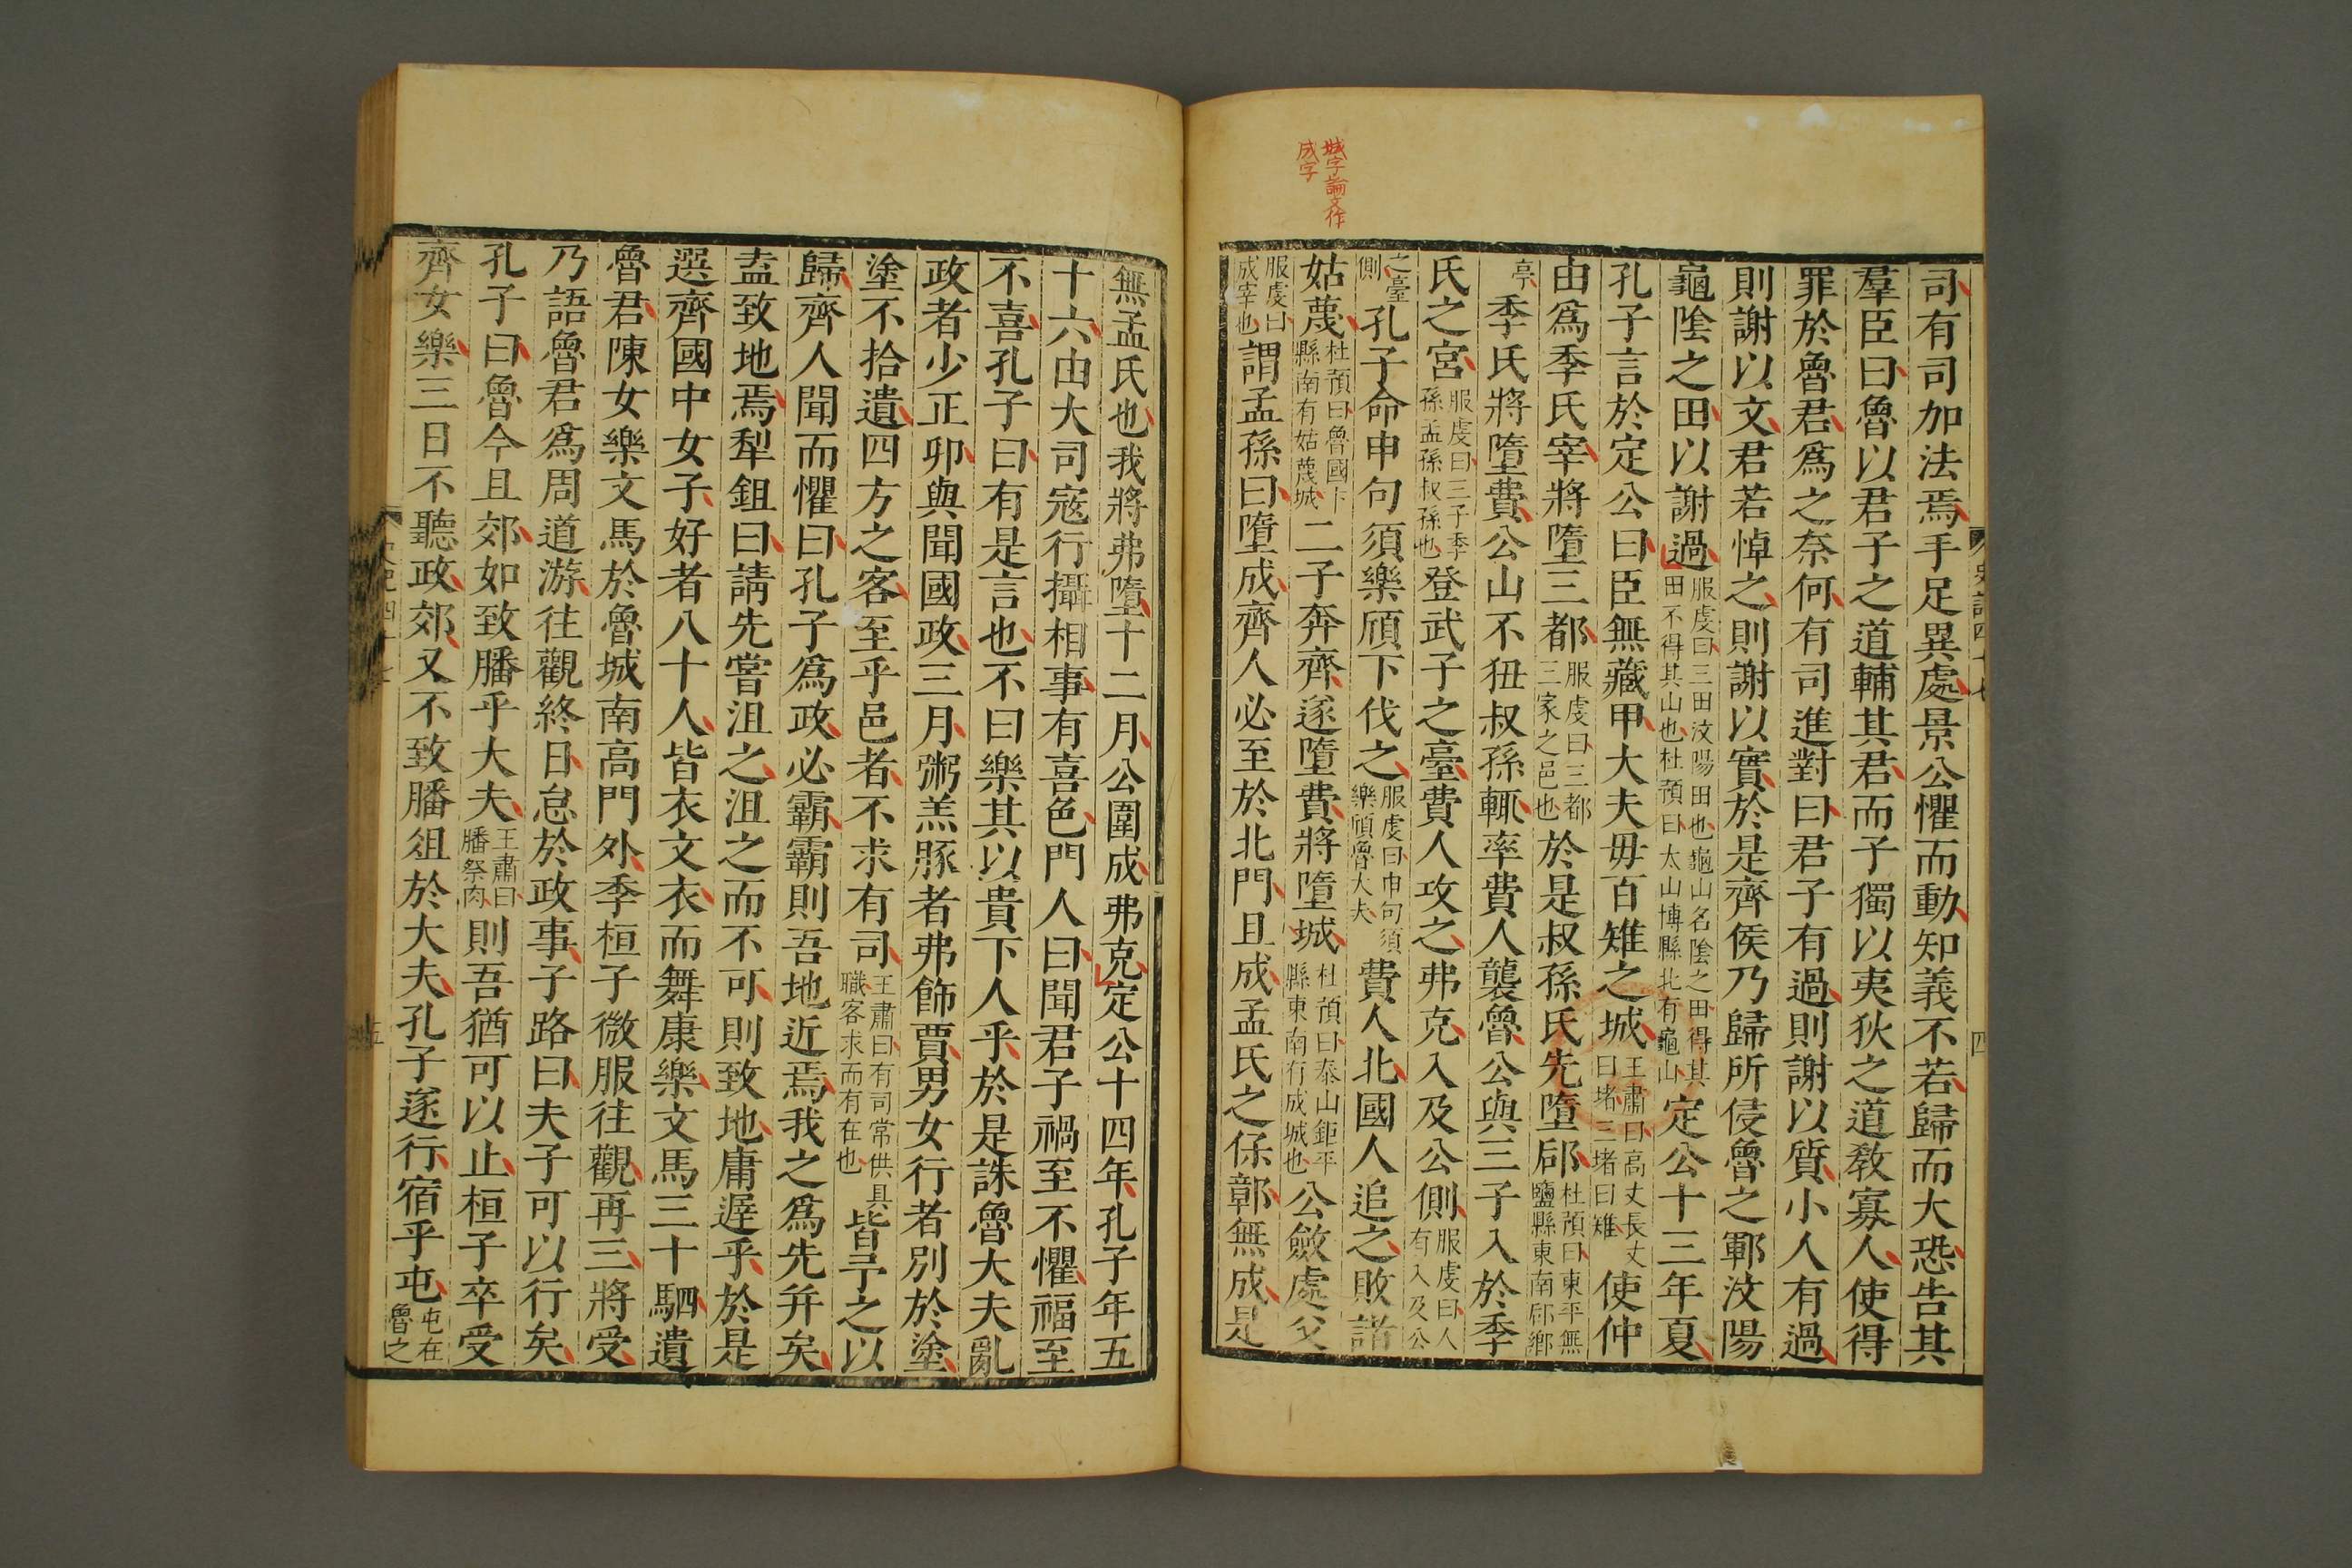 城字論文作
成字
司有司加法焉手足異處景公懼而動知義不若歸而大恐告其
羣臣曰魯以君子之道輔其君而子獨以夷狄之道敎寡人使得
罪於魯君爲之奈何有司進對曰君子有過則謝以質小人有過
則謝以文君若悼之則謝以實於是齊侯乃歸所侵魯之鄆汶陽
龜陰之田以謝過服虔曰三田汶陽田也龜山名陰之田得其田不得其山也杜預曰太山博縣北有龜山定公十三年夏
孔子言於定公曰臣無藏甲大夫毋百雉之城王肅曰高丈長丈曰堵三堵曰雉使仲
由爲季氏宰將墮三都服虔曰三都三家之邑也於是叔孫氏先墮郈杜預曰東平無鹽縣東南郈鄉
亭季氏將墮費公山不狃叔孫輒率費人襲魯公與三子入於季
氏之宮服虔曰三子季孫孟孫叔孫也登武子之臺費人攻之弗克入及公側服虔曰人有入及公
之臺側孔子命申句須樂頎下伐之服虔曰申句須樂頎魯大夫費人北國人追之敗諸
姑蔑杜預曰魯國卞縣南有姑蔑城二子奔齊遂墮費將墮城杜預曰泰山鉅平縣東南有成城也公斂處父
服虔曰成宰也謂孟孫曰墮成齊人必至於北門且成孟氏之保鄣無成是
史記四十七
四
無孟氏也我將弗墮十二月公圍成弗克定公十四年孔子年五
十六由大司寇行攝相事有喜色門人曰聞君子禍至不懼福至
不喜孔子曰有是言也不曰樂其以貴下人乎於是誅魯大夫亂
政者少正卯與聞國政三月粥羔豚者弗飾賈男女行者別於塗
塗不拾遺四方之客至乎邑者不求有司王肅曰有司常供其職客求而有在也皆予之以
歸齊人聞而懼曰孔子爲政必霸霸則吾地近焉我之爲先幷矣
盍致地焉犁鉏曰請先嘗沮之沮之而不可則致地庸遲乎於是
選齊國中女子好者八十人皆衣文衣而舞康樂文馬三十駟遺
魯君陳女樂文馬於魯城南高門外季桓子微服往觀再三將受
乃語魯君爲周道游往觀終日怠於政事子路曰夫子可以行矣
孔子曰魯今且郊如致膰乎大夫王肅曰膰祭肉則吾猶可以止桓子卒受
齊女樂三日不聽政郊又不致膰俎於大夫孔子遂行宿乎屯屯在魯之
五